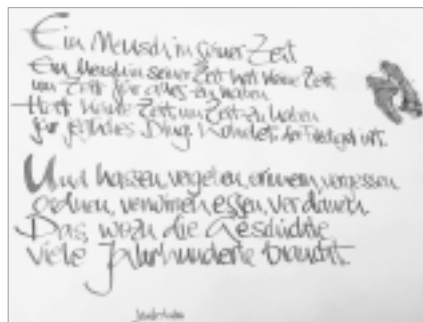 Ein Mensch in seiner Zeit
Ein Mensch in seiner Zeit hat keine Zeit
um Zeit für alles zu haben
Hat keine Zeit, um Zeit zu haben
für jegliches Ding.
Und hassen, vergeben, erinnern, vergessen
ordnen, verwirren essen, verdauen.
Das, wozu die Geschichte
viele Jahrhunderte braucht.